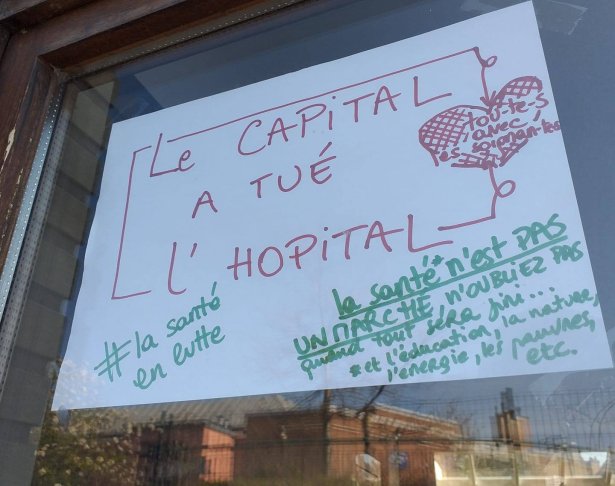 Le CAPITAL
A TUÉ
L'HOPITAL
tou·te·s
avec
les soignant·es
#la santé
en lutte
la santé* n'est PAS
UN MARCHÉ N'OUBLIEZ PAS
quand tout sera fini...
* et l'éducation, la nature,
l'énergie, les pauvres,
etc.